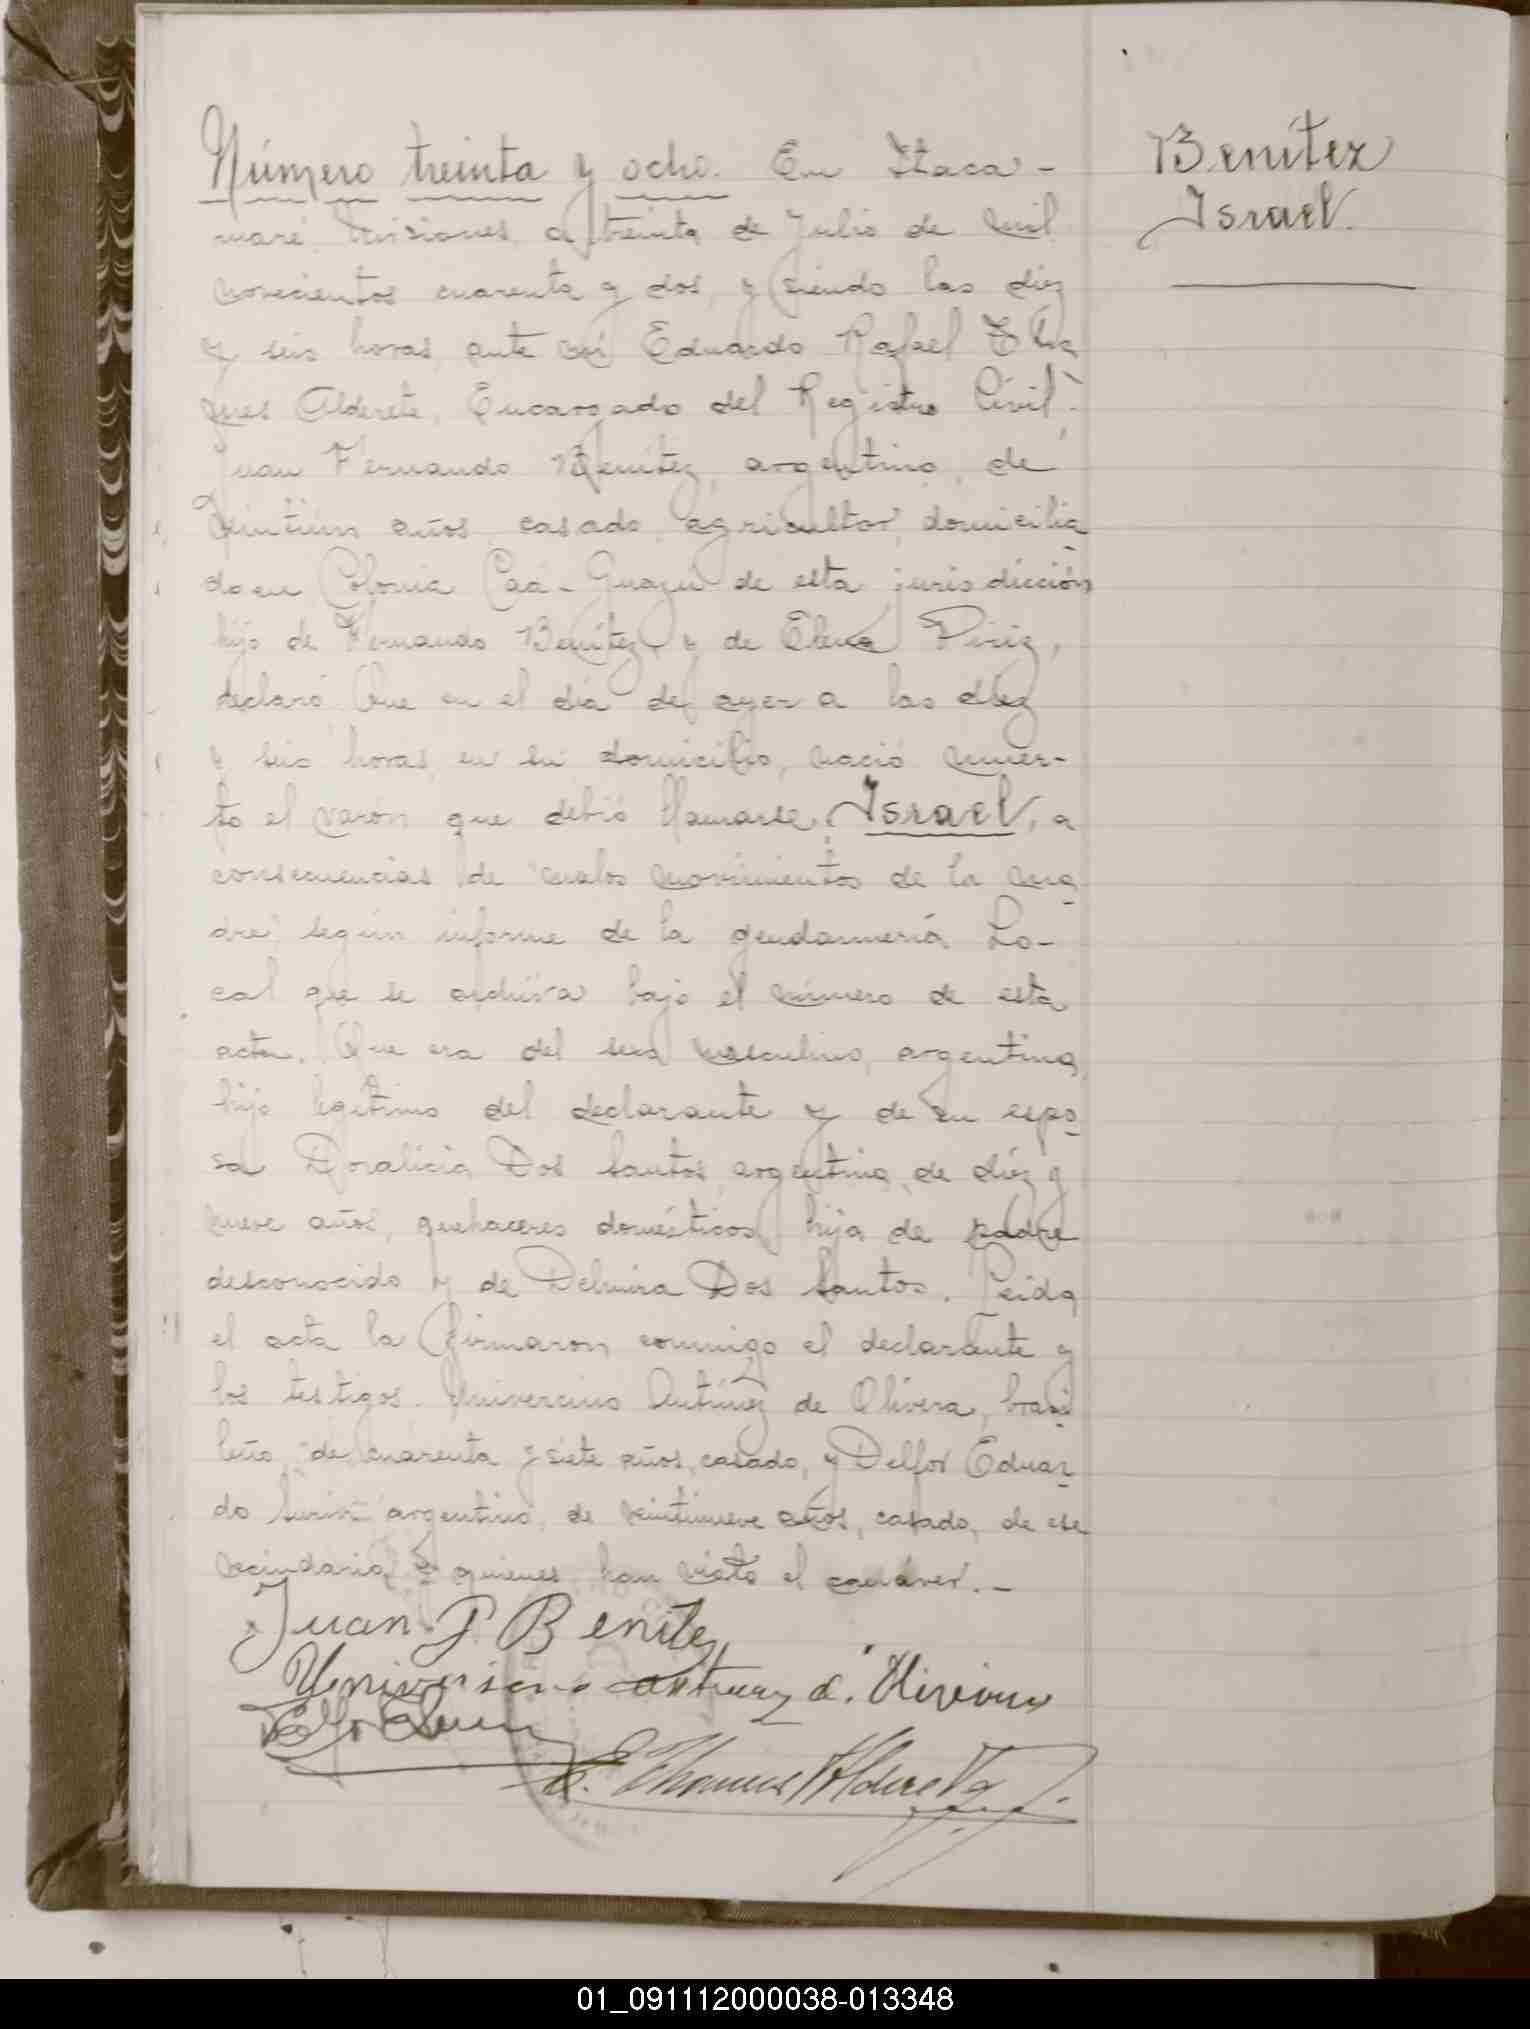 Número treinta y ocho. En Itaca-
Benítez
Israel.
ruaré Misiones, a treinta de Julio de mil
novecientos cuarenta y dos, y siendo las diez
y seis horas, ante mí Eduardo Rafael
Alderete, Encargado del Registro Civil,
Juan Fernando Benítez, argentino, de
veintiún años, casado, agricultor, domicilia
do en Colonia Caá-Guazú de esta jurisdicción
hijo de Fernando Benítez y de Elena Piriz,
declaró: Que en el día de ayer a las diez
y seis horas, en su domicilio, nació muer-
to el varón que debió llamarse Israel, a
consecuencias de malos movimientos de la ma
dre, según informe de la gendarmería Lo-
cal que se archiva bajo el número de esta
acta. Que era del sexo masculino, argentino,
hijo legítimo del declarante y de su espo
sa Doralicia Dos Santos, argentina, de diez y
nueve años, quehaceres domésticos, hija de padre
desconocido y de Delmira Dos Santos. Leida
el acta la firmaron conmigo el declarante y
los testigos. Univercino Antúnez de Olivera, brasi
leño, de cuarenta y siete años, casado, y Delfor Eduar
do argentino, de veintinueve años, casado, de este
vecindario, quienes han visto el cadáver.-
Juan F Benitez
E. Thamus Alderete
01_091112000038-013348